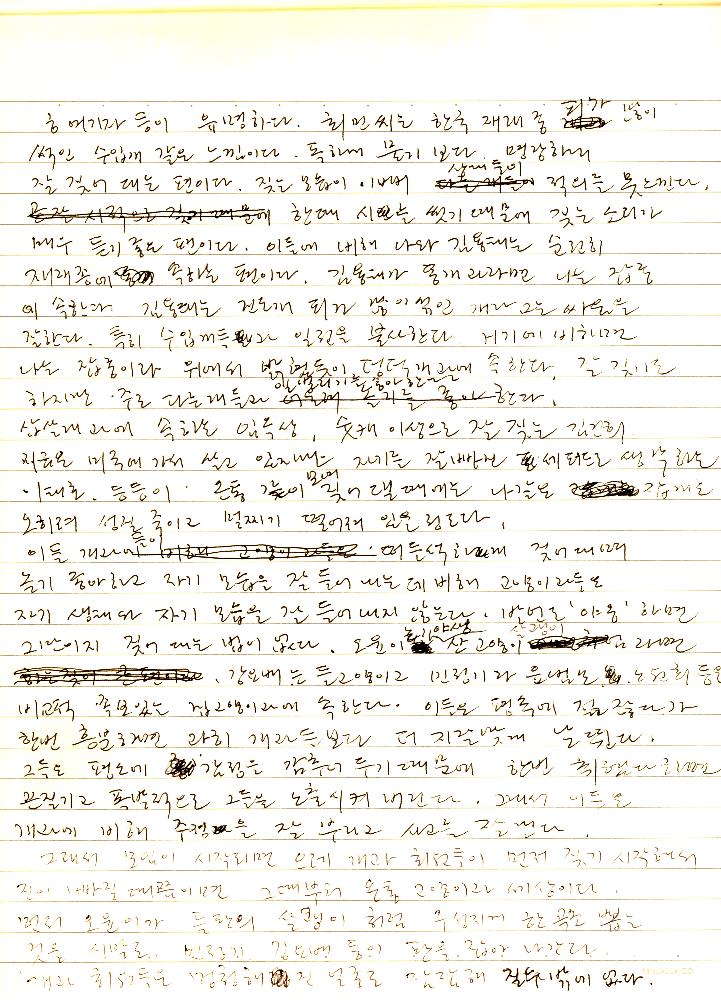 등이 유명하다. 최민씨는 한국 재래종 피가 많이
섞인 수입개 같은 느낌이다. 독하게 물기 보다 명랑하게
잘 짖어 대는 편이다. 짖는 모습이 이뻐 상대들이 적의를 못느낀다.
한데 시를 썼기 때문에 짖는 소리가
매우 듣기 좋은 편이다. 이들에 비해 나와 김용태는 순전히
재래종에 속하는 편이다. 김용태가 똥개과라면 나는 잡종
에 속한다 김용태는 진도개 피가 많이 섞인 개라 그는 싸움을
잘한다. 특히 수입개들과 일전을 불사한다. 거기에 비하면
나는 잡종이라 위에서 밝혔듯이 떵떵개과에 속한다. 잘 짖기는
하지만 주로 다른개들과 한다.
삽살개과에 속하는 임옥상, 이상으로 잘 짖는 김건희
지금은 미국에 가서 살고 있지만 자기를 잘빠진 세퍼드로 생각하는
이태호. 등등이 온통 모여 짖어 댈 때에는 나같은 잡개는
오히려 성질 죽이고 멀찌기 떨어져 있을 정도다.
이들 개과들이 떠들석하게 짖어대며
놀기 좋아하고 자기 모습을 잘 들어내는데 비해 고양이과들은
자기 생태나 자기 모습을 잘 들어내지 않는다. 번어로 '야옹' 하면
그만이지 짖어 대는 법이 없다. 오윤이 산고양이 살쾡이 라면
강요배는 들고양이고 민정기과 윤범모, 노원희 등은
비교적 족보있는 집고양이과에 속한다. 이들은 평소에 점잖다가
한번 흥분하면 과히 개과들보다 더 지랄맞게 날뛴다.
그들은 평소에 감정을 감추어 두기 때문에 한번 취했다 하면
끈질기고 폭발적으로 그들을 노출시켜 버린다. 그래서 이들은
개과에 비해 주정을 잘 부리고 사고를 잘낸다.
그래서 모임이 시작되면 으레 개과 회원들이 먼저 짖기 시작해서
힘이 빠질 때쯤이면 그때부터 온통 고양이과 세상이다.
먼저 오윤이가 살쾡이 처럼 구성지게 한곡조 뽑는
것을 시발로, 민정기 김요배 등의 판을 잡아 나간다.
개과 회원들은 멍청해진 얼굴로 잠잠해 질수 밖에 없다.